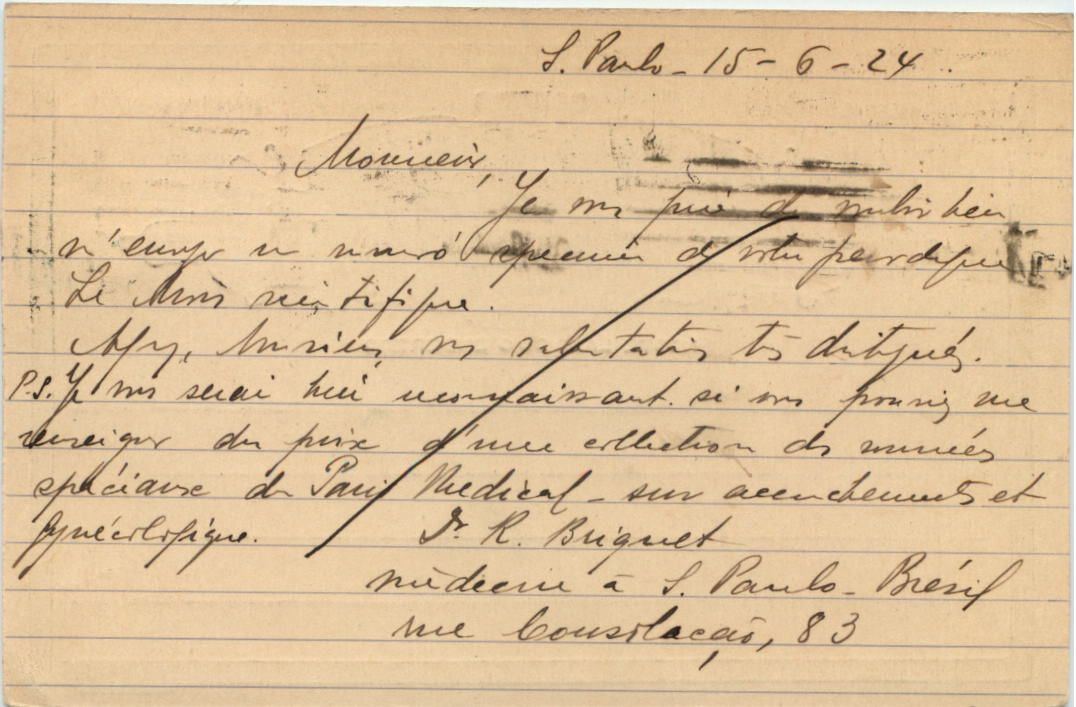 S. Paulo - 15 - 6 - 24.
Monsieur,
Je vous prie de vouloir bien
m'envoyer un numéro specimen de votre periodique
Le Mois scientifique.
Agréez, Monsieur, mes salutations très distinguées.
P.S. Je vous serai bien reconnaissant si vous pouviez me
renseigner du prix d'une collection des numéros
spéciaux du Paris Médical - sur accouchements et
gynécologique.
Dr. R. Briquet
médecin à S. Paulo - Brésil
rue Consolação, 83